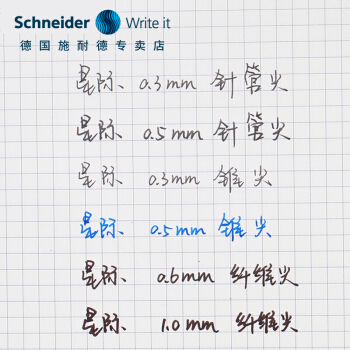 Schneider Write it
德国施耐德专卖店
星际 0.3mm 针管尖
星际 0.5mm 针管尖
星际 0.3mm 锥尖
星际 0.5mm 锥尖
星际 0.6mm 纤维尖
星际 1.0mm 纤维尖